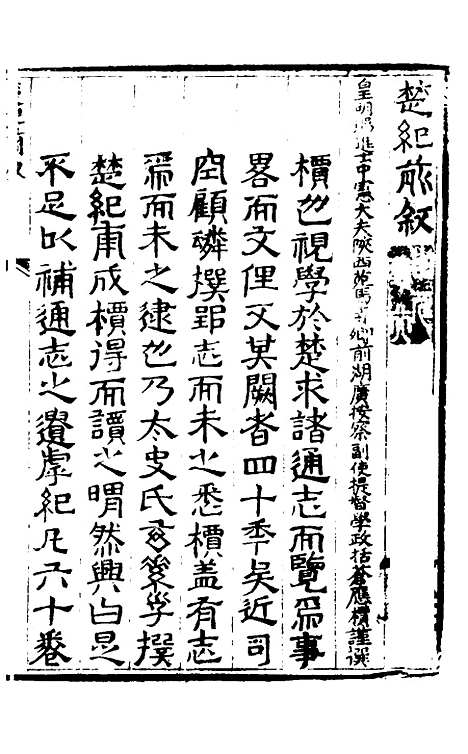 楚紀前叙
皇明賜進士中憲大夫陝西苑馬寺卿前湖廣按察副使提督學政括蒼應檟謹選
檟也視學於楚求諸通志而覽焉事
畧而文俚又其闕者四十年矣近司
空顧璘撰郢志而未之悉檟蓋有志
焉而未之逮也乃太史氏廖學撰
楚紀甫成檟得而讀之喟然興曰是
不足以補通志之遺虖紀凡六十卷